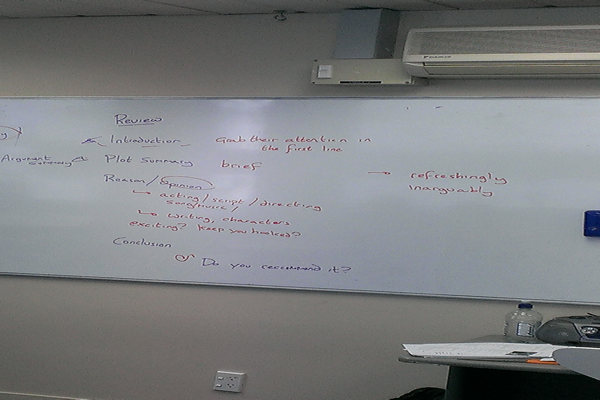 Review
Introduction Grab their attention in
the first line
Argument
Summary Plot Summary brief
refreshingly
inarguably
Reason/Opinion
acting/script/directing
song/music/
writing, characters
exciting? Keep you hooked?
Conclusion
Do you recommend it?
DAIKIN